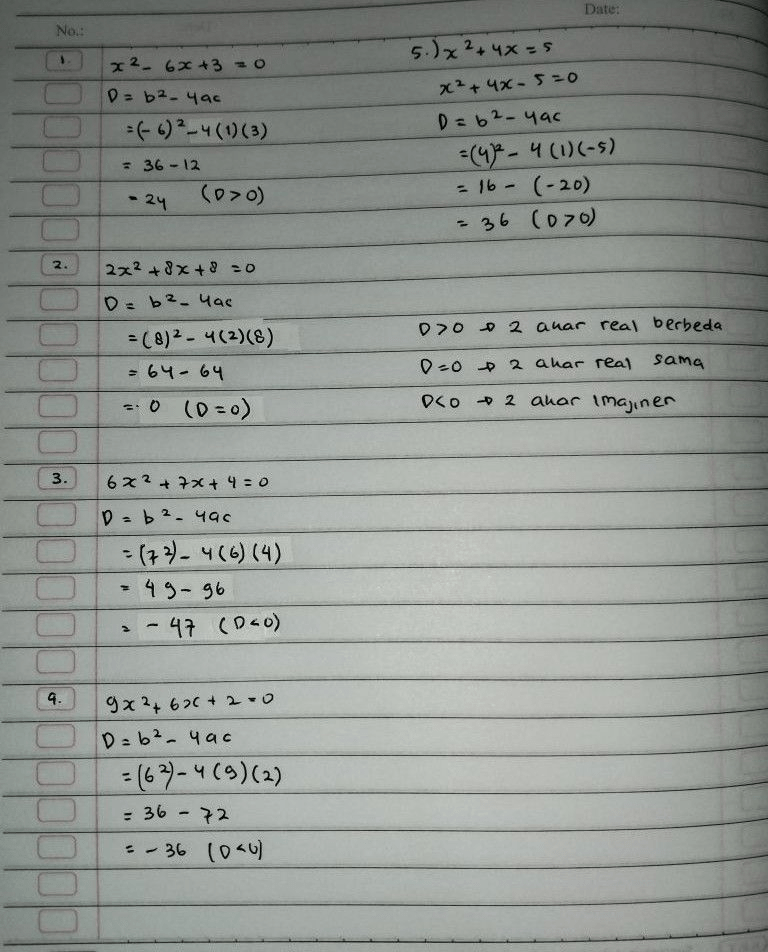 Date:
No.:
1. x² - 6x + 3 = 0
D = b² - 4ac
= (-6)² - 4(1)(3)
= 36 - 12
= 24 (D > 0)
5.) x² + 4x = 5
x² + 4x - 5 = 0
D = b² - 4ac
= (4)² - 4(1)(-5)
= 16 - (-20)
= 36 (D > 0)
2. 2x² + 8x + 8 = 0
D = b² - 4ac
= (8)² - 4(2)(8)
= 64 - 64
= 0 (D = 0)
D > 0 → 2 akar real berbeda
D = 0 → 2 akar real sama
D < 0 → 2 akar imajiner
3. 6x² + 7x + 4 = 0
D = b² - 4ac
= (7²) - 4(6)(4)
= 49 - 96
= - 47 (D < 0)
4. 9x² + 6x + 2 = 0
D = b² - 4ac
= (6²) - 4(9)(2)
= 36 - 72
= - 36 (D < 0)